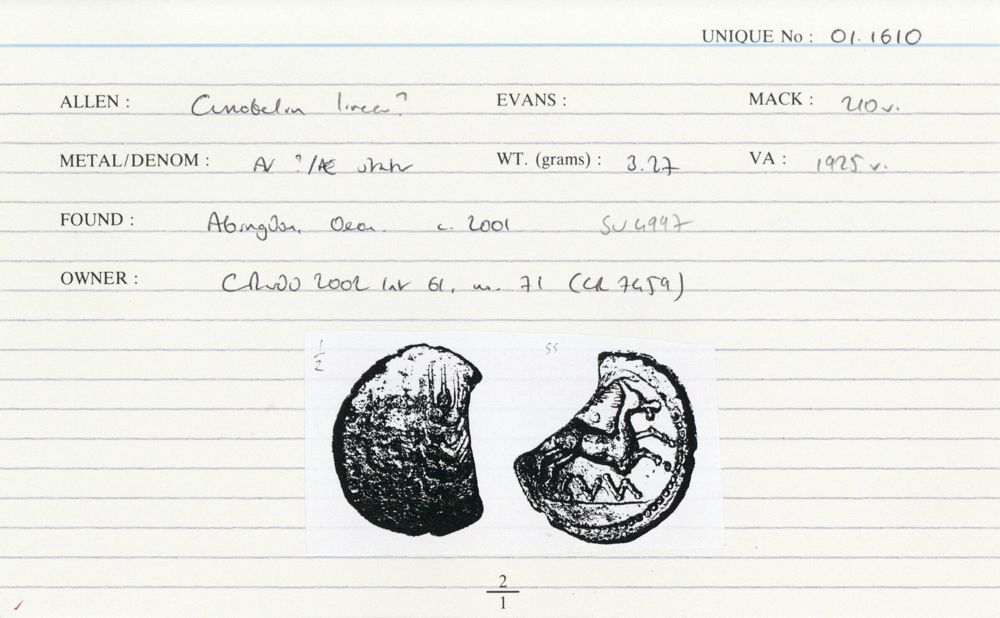 UNIQUE No : 01.1610
ALLEN : Cunobelin linear? EVANS : MACK : 210 v.
METAL/DENOM : AV ?/AE stater WT. (grams) : 3.27 VA : 1925 v.
FOUND : Abingdon, Oxon. c. 2001 SU 4997
OWNER : 2002 61, 71 (CR 7459)
1/2 SS
CVN
2
1